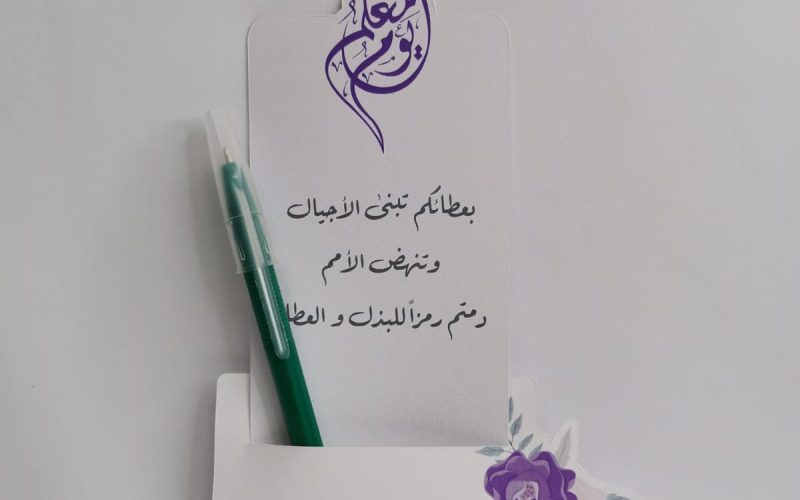 يوم معلم
بعطائكم تبنىٰ الأجيال
وتنهض الأمم
دمتم رمزاً للبذل و العطا